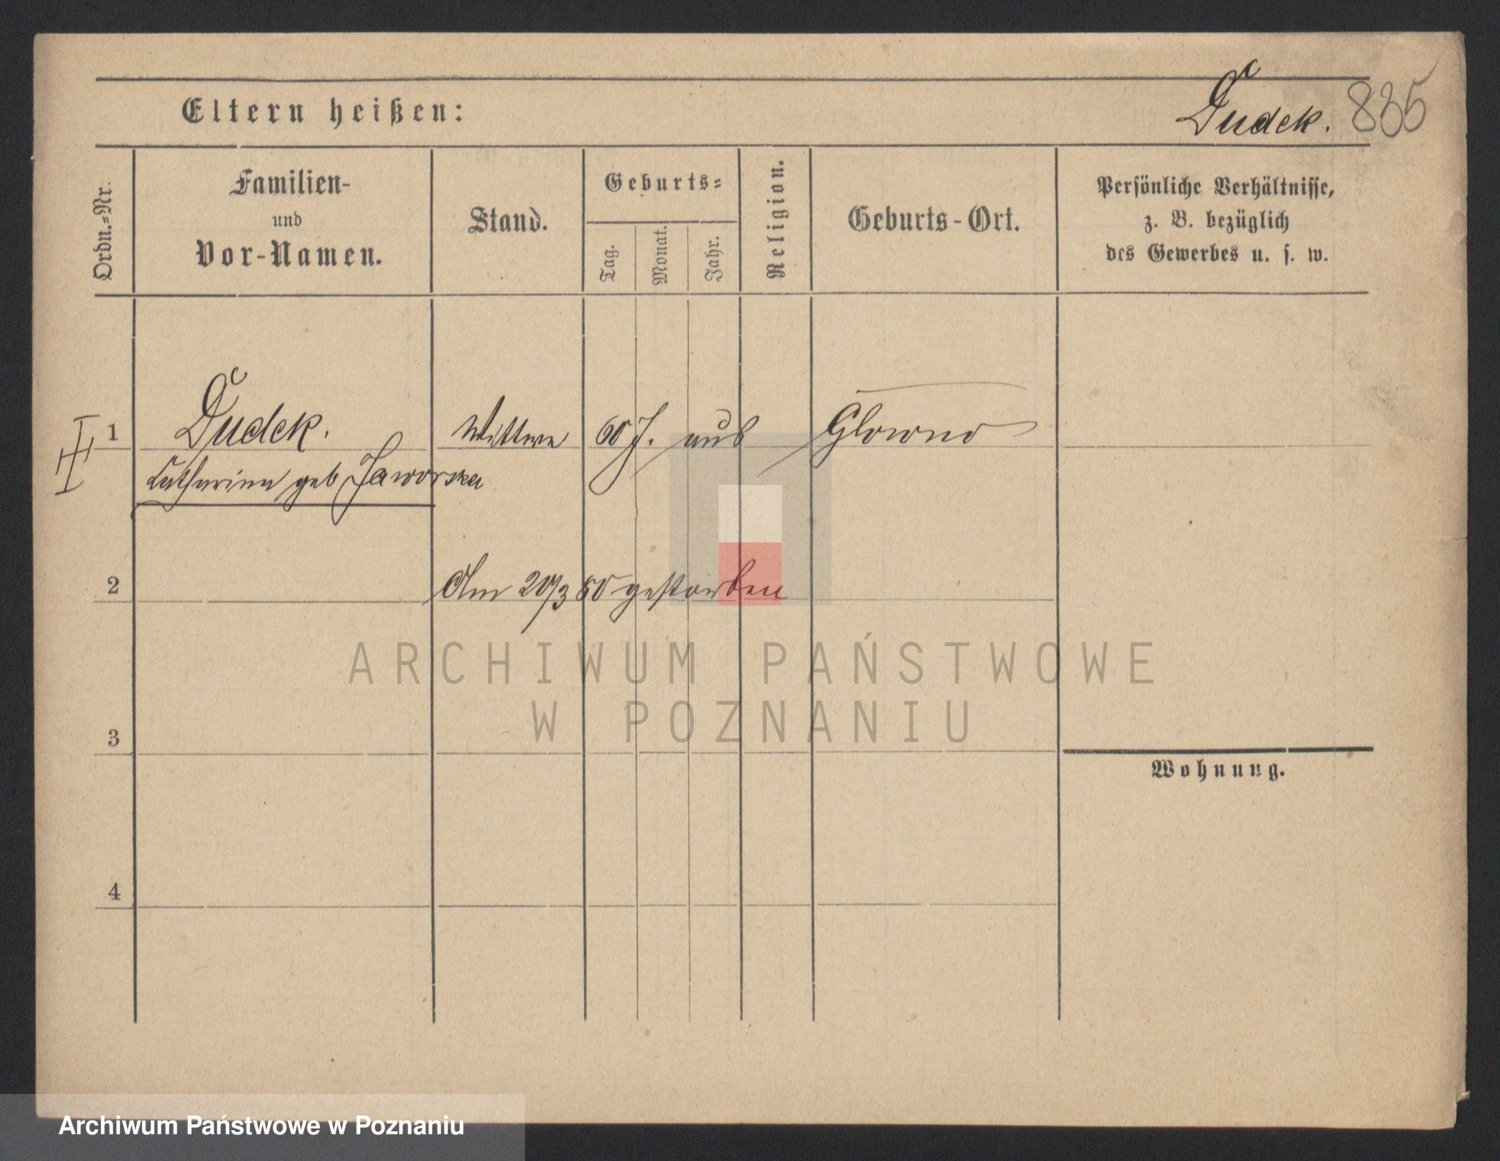 Eltern heißen:
Dudek. 835
Ordn.-Nr.
Familien-
und
Vor-Namen.
Stand.
Geburts-
Tag.
Monat.
Jahr.
Religion.
Geburts-Ort.
Persönliche Verhältnisse,
z. B. bezüglich
des Gewerbes u. s. w.
1 Dudek. Wittwe 60 J. aus Glowno
Catharina geb Jaworska
2 Am 20/3 80 gestorben
ARCHIWUM PAŃSTWOWE
W POZNANIU
3
Wohnung.
4
Archiwum Państwowe w Poznaniu